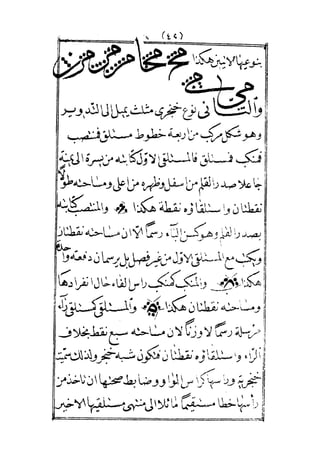 (٤٢)
بنوعيها الاثنين هكذا
والثاني نوع خنجري مثلث يميل الى التدوير
وهو شكل مركب من اربعة خطوط مستلق فمنتصب
فمنكب فمستلق فالمستلقي الاول كتابته من يسرة الى يمنة
جاعلا صدر القلم من اسفل وظهره من اعلى ومساحته طولا
نقطتان واستلقاؤه نقطة هكذا والمنتصب كتابته
بصدر القلم وهو كسن الباء رسما الا ان مساحته نقطتان
ويكتب مع المستلقي الاول من غير فصل بل يرسمان دفعة واحدة
هكذا والمنكب كمنكب راس الفاء حال انفرادها
ومساحته نقطتان هكذا والمستلقي كمستلقي راء
مرسلة رسما لا وزنا لان مساحته سبع نقط بخلاف
الراء واستلقاؤه نقطتان فتكون شبه خنجر ولذلك سميت
خنجرية ورأسها كراس الواو وضابط صحتها ان تاخذ من
رأسها خطا مستقيما ماثلا الى منتهى مستلقيها الاخير